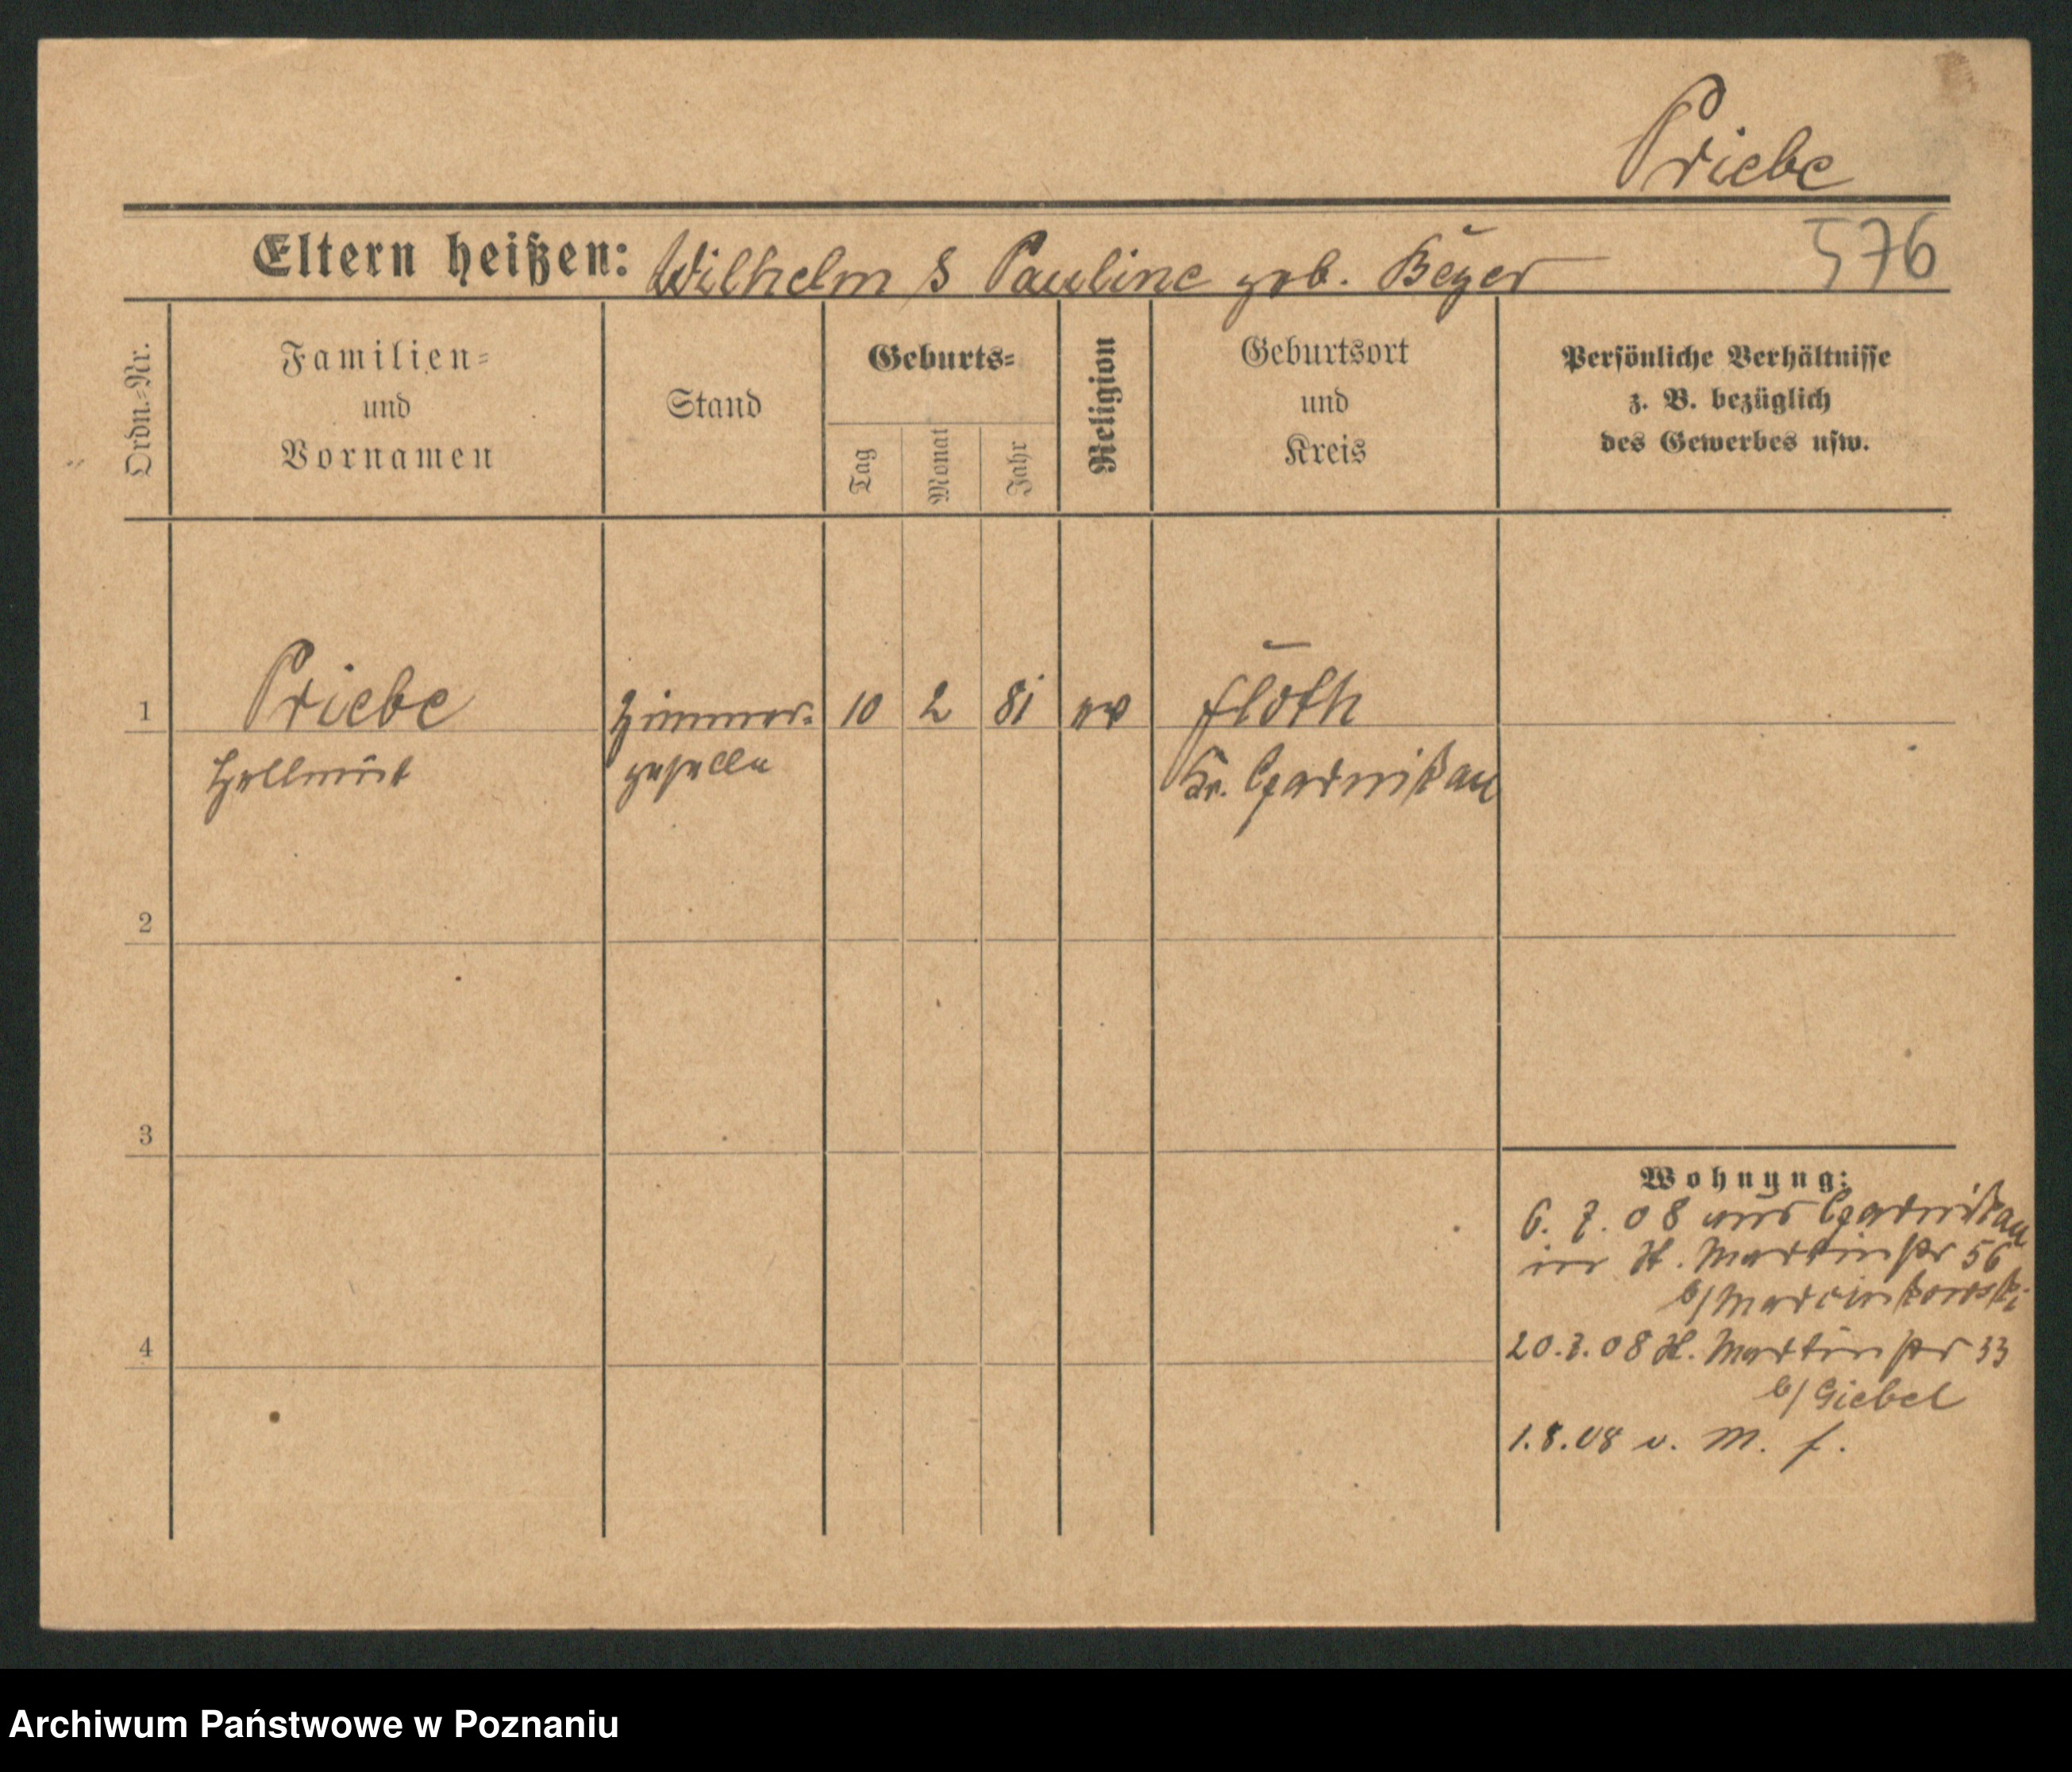 Priebe
Eltern heißen: Wilhelm & Pauline geb. Beyer
576
Ordn.-Nr.
Familien-
und
Vornamen
Stand
Geburts-
Tag
Monat
Jahr
Religion
Geburtsort
und
Kreis
Persönliche Verhältnisse
z. B. bezüglich
des Gewerbes usw.
1
Priebe
Hellmut
Zimmer-
geselle
10
2
81
ev
Floth
Kr. Czarnikau
2
3
4
Wohnung:
6. 7. 08 aus Czarnikau
in St. Martinstr 56
b/ Marcinkowski
20.7.08 St. Martinstr 33
b/ Giebel
1.8.08 v. M. f.
Archiwum Państwowe w Poznaniu